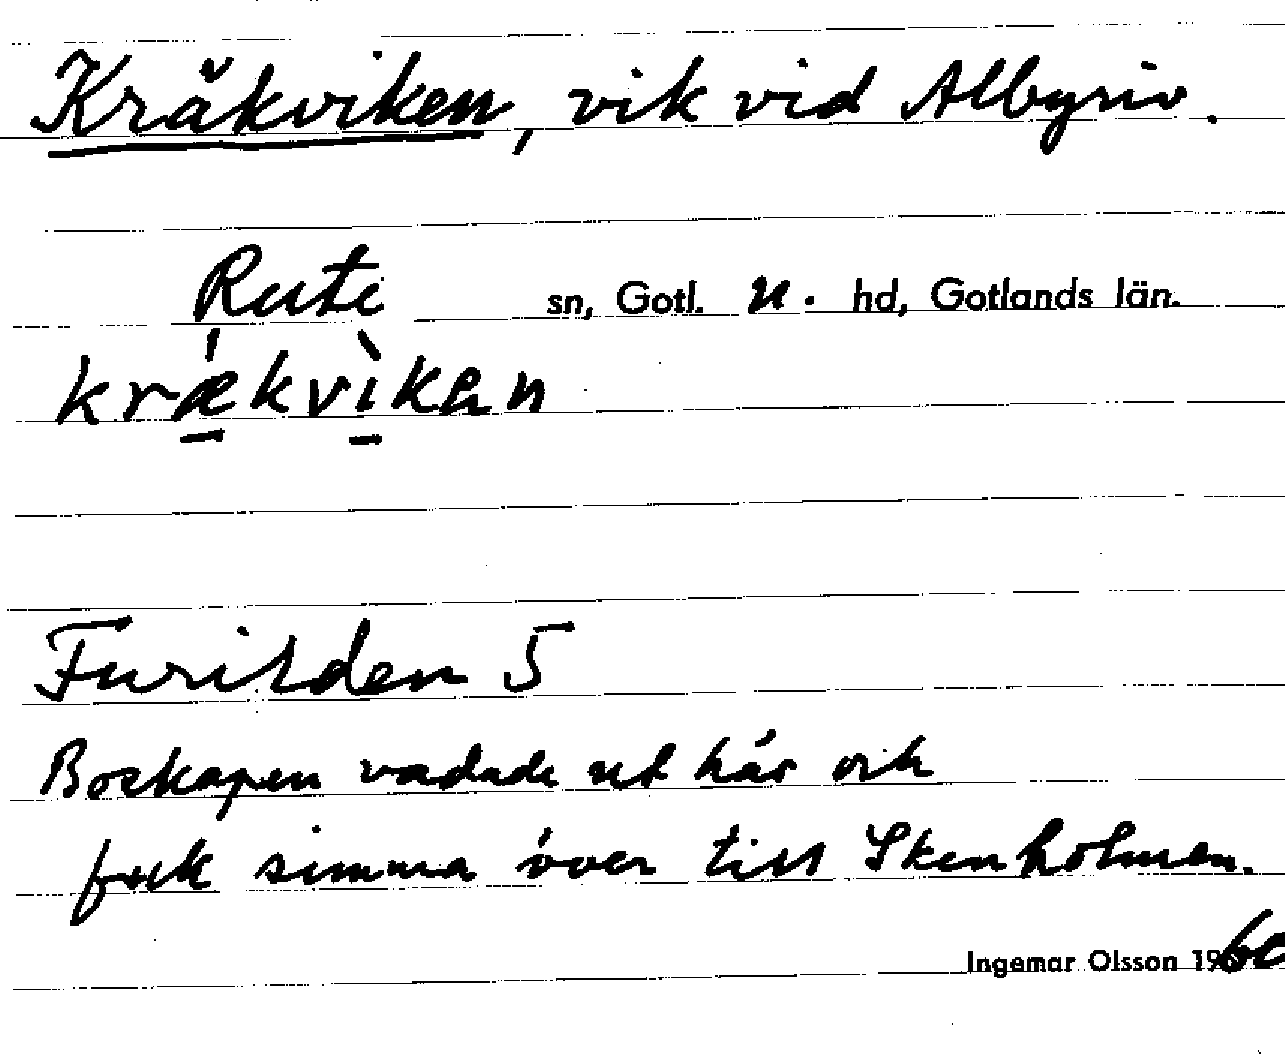 Kråkviken, vik vid Albyriv.
Rute sn, Gotl. n. hd, Gotlands län.
krǽ̱kvì̱kən
Furilden 5
Boskapen vadade ut här och
fick simma över till Skenholmen.
Ingemar Olsson 1960